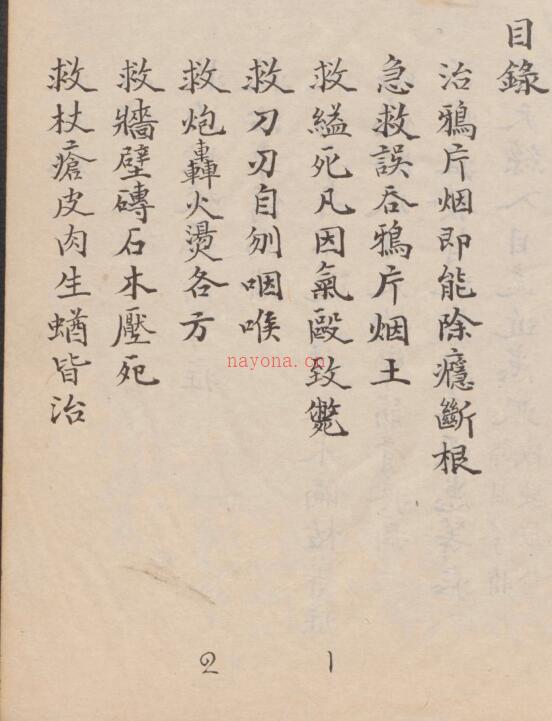 目錄
治鴉片烟即能除癮斷根
急救誤吞鴉片烟土
救縊死凡因氣毆致斃
救刀刃自刎咽喉
救炮轟火燙各方
救牆壁磚石木壓死
救杖瘡皮肉生蛆皆治
1
2
nayona.cn